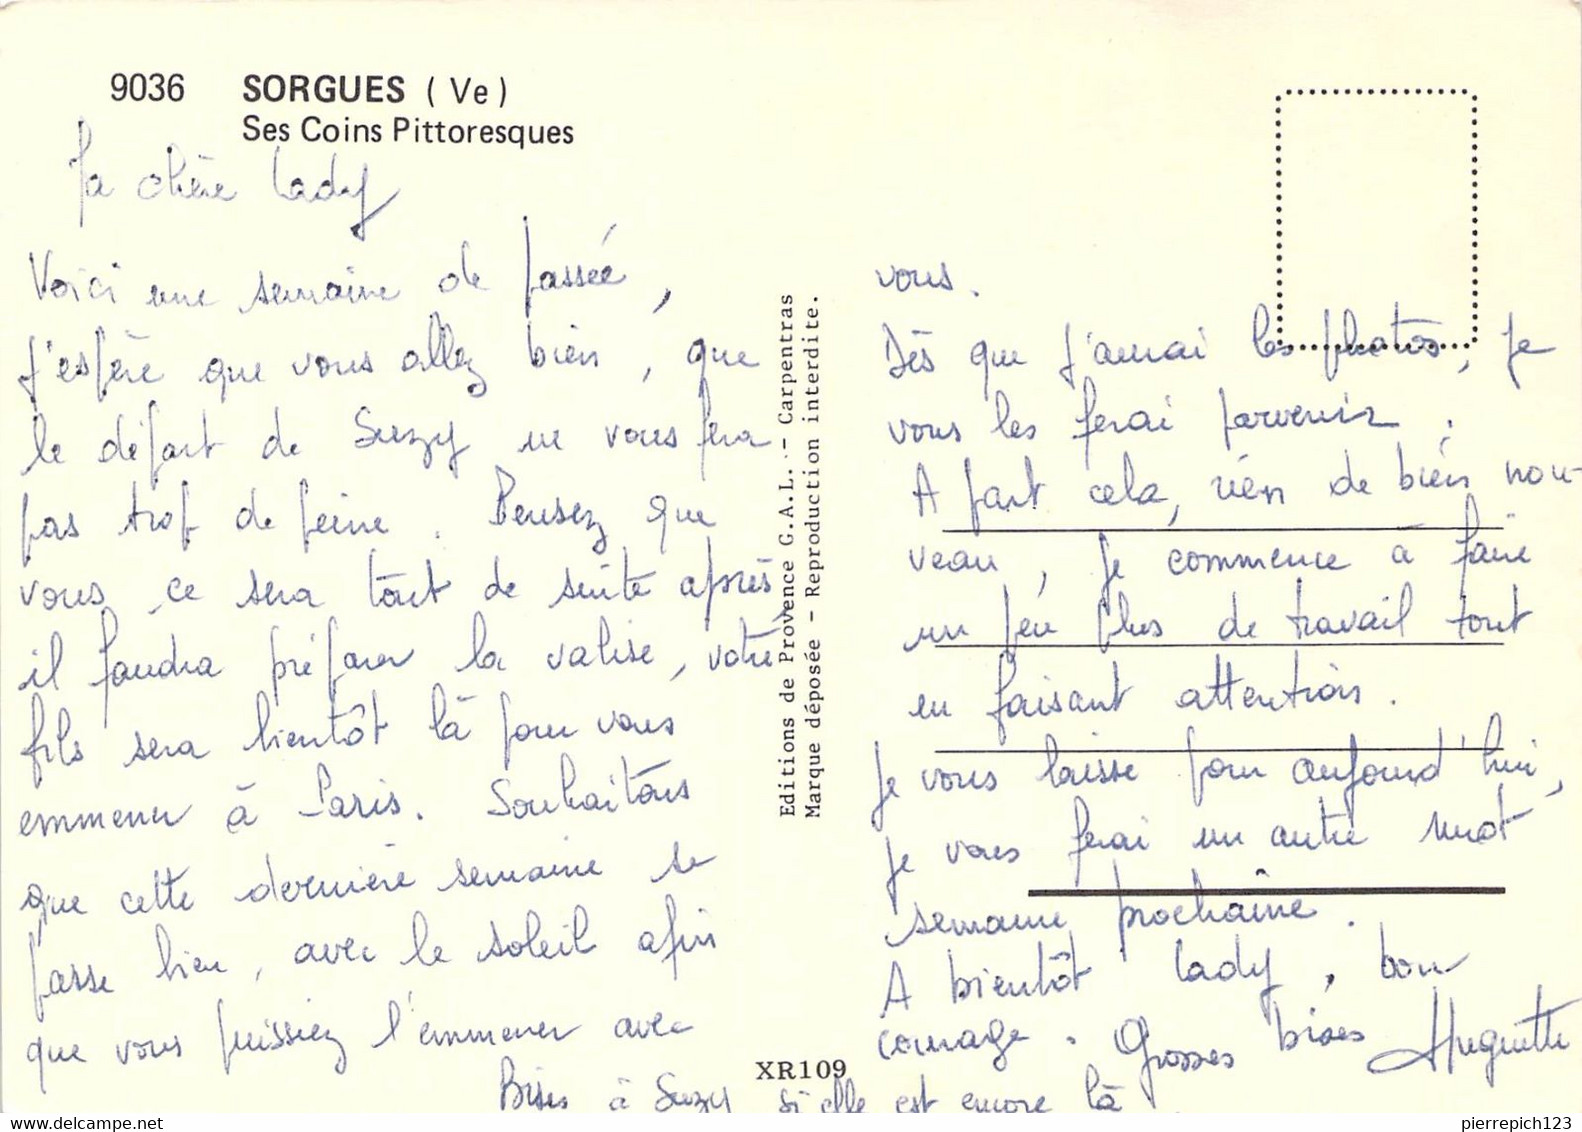 9036 SORGUES (Ve)
Ses Coins Pittoresques
Ma chère Lady
Voici une semaine de passée,
j'espère que vous allez bien, que
le départ de Suzy ne vous fera
pas trop de peine. Pensez que
vous, ce sera tout de suite après,
il faudra préparer la valise, votre
fils sera bientôt là pour vous
emmener à Paris. Souhaitons
que cette dernière semaine se
passe bien, avec le soleil afin
que vous puissiez l'emmener avec
vous.
Dès que j'aurai les photos, je
vous les ferai parvenir.
A part cela, rien de bien nou-
veau, je commence à faire
un peu plus de travail tout
en faisant attention.
Je vous laisse pour aujourd'hui,
je vous ferai un autre mot
semaine prochaine.
A bientôt Lady, bon
courage. Grosses bises Huguette
Bises à Suzy si elle est encore là
Editions de Provence G.A.L. - Carpentras
Marque déposée - Reproduction interdite.
XR109
pierrepich123